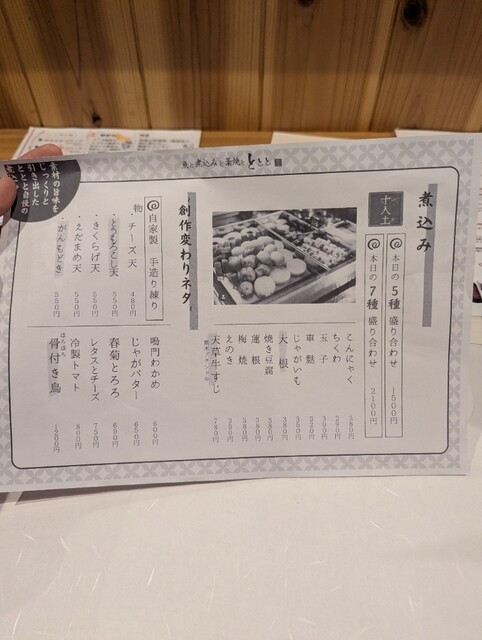 魚と煮込みと藁焼き ととと
素材の旨味を
じっくりと
引き出した
ととと自慢の
煮込み
十人士
本日の5種盛り合わせ 1500円
本日の7種盛り合わせ 2100円
こんにゃく 280円
ちくわ
玉子
車麩
じゃがいも 350円
大根 380円
焼き豆腐 380円
蓮根 380円
梅焼 380円
えのき
天草牛すじ 780円
創作変わりネタ
自家製 手造り練り物
チーズ天 480円
・とうもろこし天 550円
・きくらげ天 550円
・えだまめ天 550円
・がんもどき 550円
鳴門わかめ 600円
じゃがバター 690円
春菊とろろ 650円
レタスとチーズ 750円
冷製トマト 800円
ほろほろ
骨付き鳥 1200円